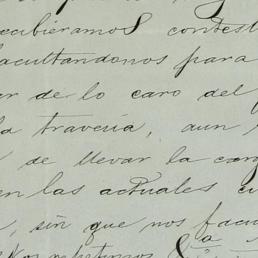 recibiéramos contest
facultandonos para
ar de lo caro del
la travesia, aun
de llevar la carg
en las actuales ci
, sin que nos facu